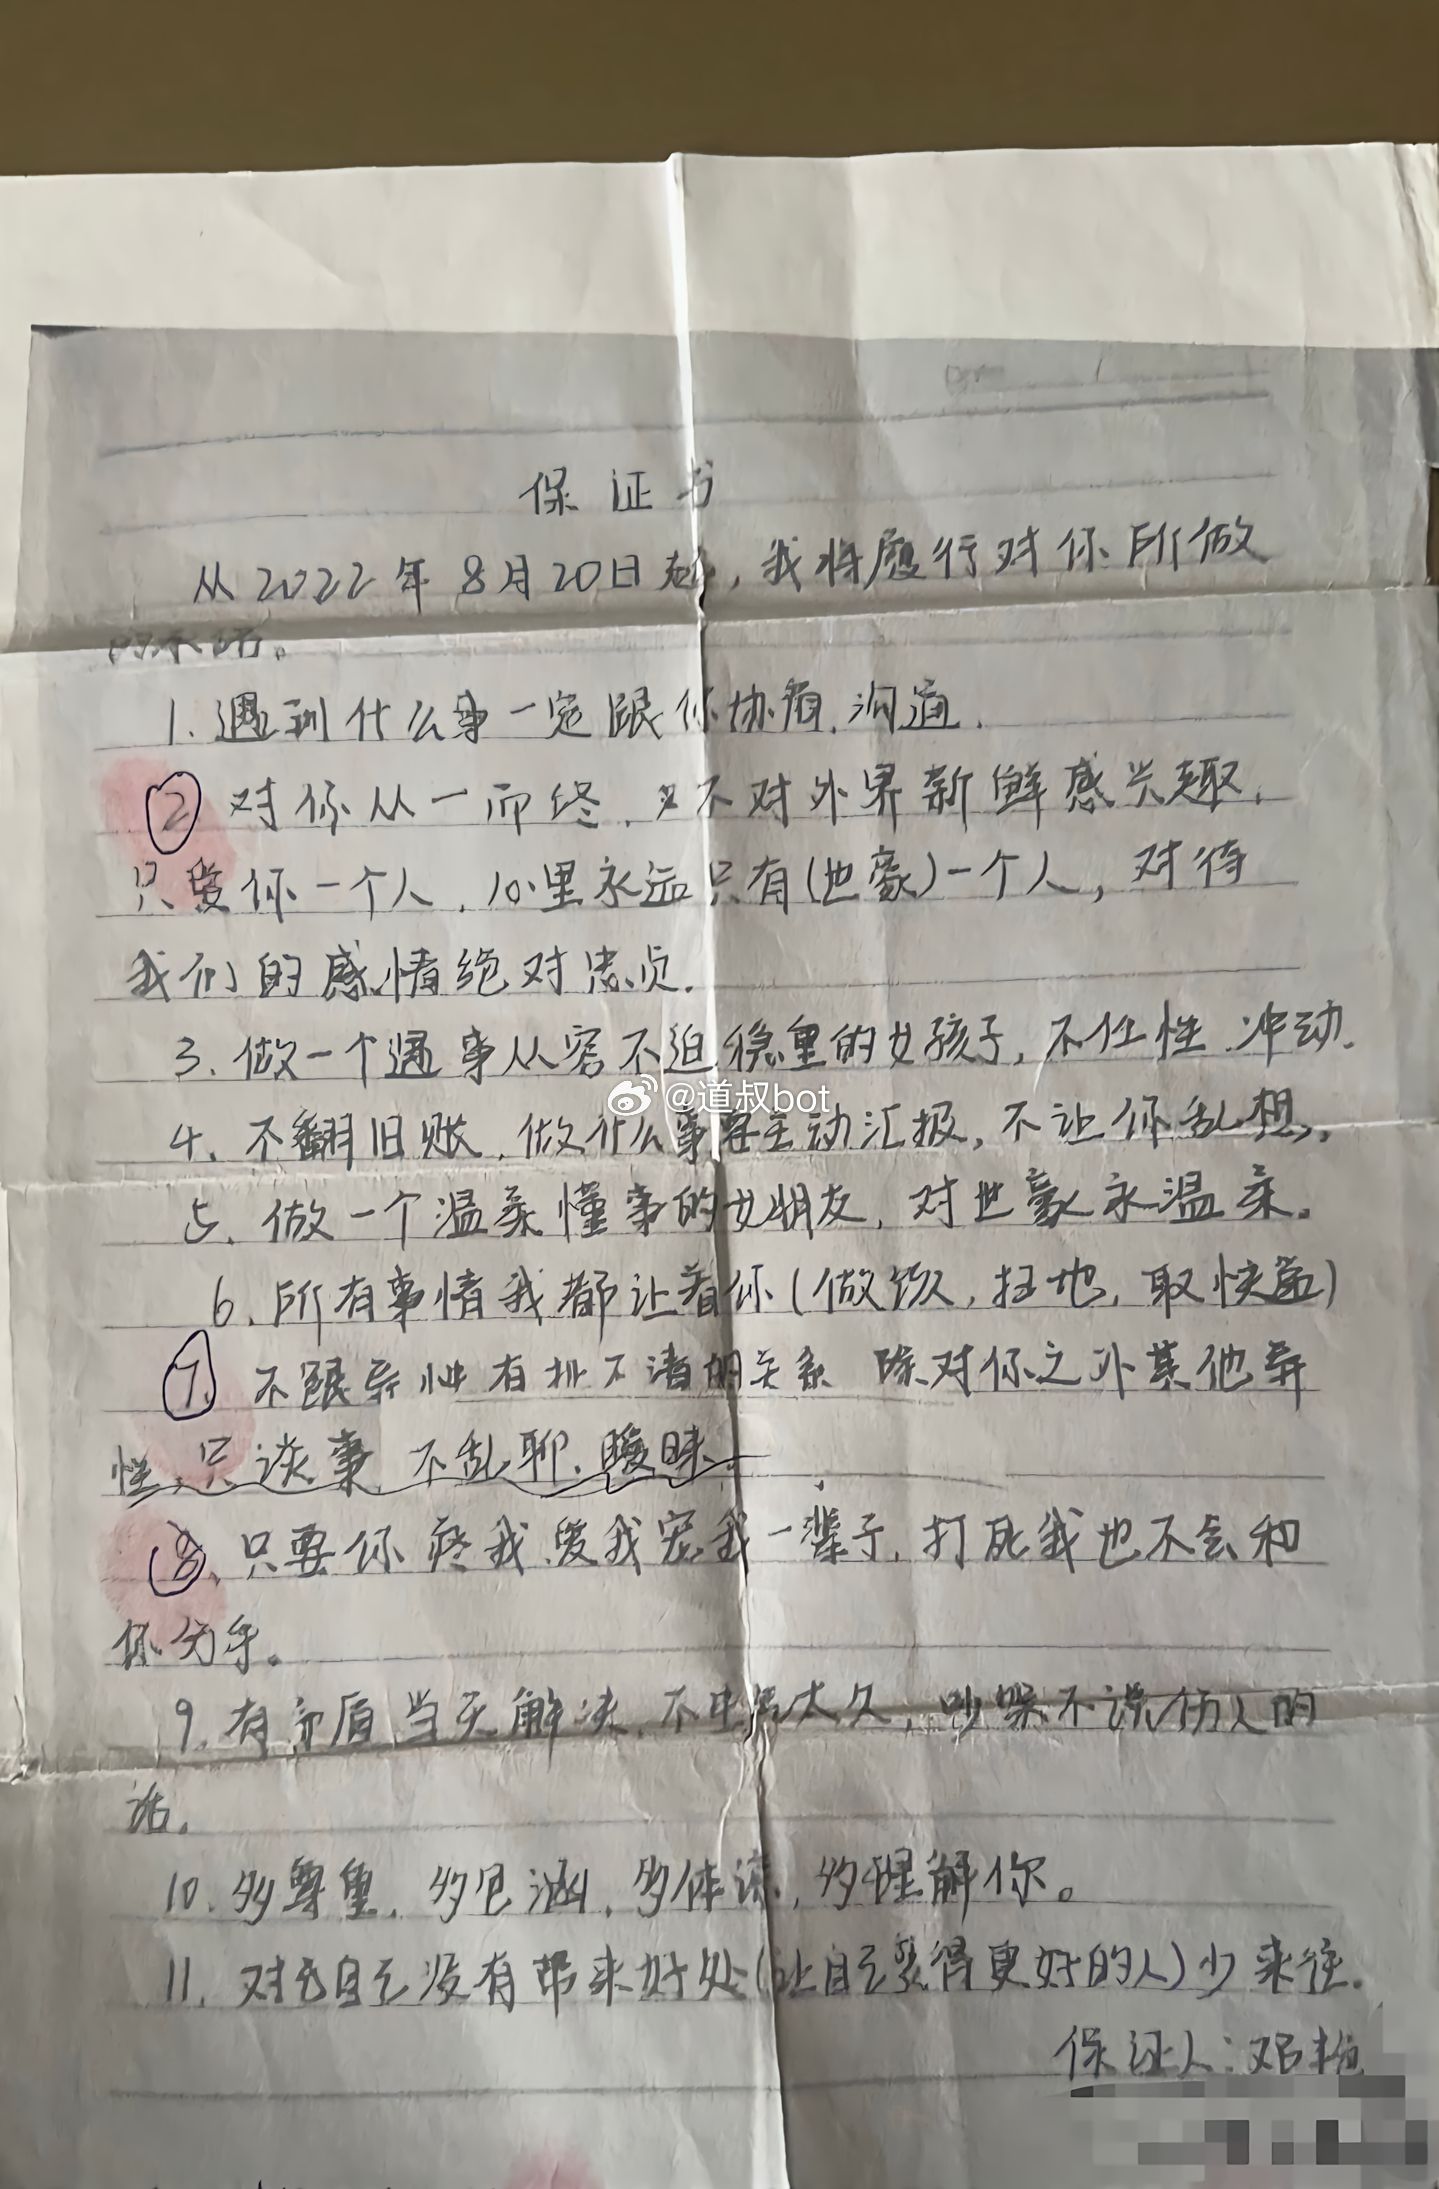 保证书
从2022年8月20日起,我将履行对你所做
的承诺。
1.遇到什么事一定跟你协商,沟通.
② 对你从一而终.不对外界新鲜感兴趣.
只爱你一个人.心里永远只有(世豪)一个人,对待
我们的感情绝对忠贞.
3.做一个遇事从容不迫稳重的女孩子,不任性.冲动.
@道叔bot
4.不翻旧账.做什么事要主动汇报,不让你乱想.
5.做一个温柔懂事的女朋友,对世豪永温柔.
6.所有事情我都让着你(做饭,扫地,取快递)
⑦ 不跟异性有扯不清的关系 除对你之外其他异
性,只谈事.不乱聊.暧昧.
⑧.只要你疼我.爱我宠我一辈子,打死我也不会和
你分手。
9.有矛盾当天解决.不生气太久,吵架不说伤人的
话.
10.多尊重.多包涵.多体谅,多理解你。
11.对于自己没有带来好处(让自己变得更好的人)少来往.
保证人:邓